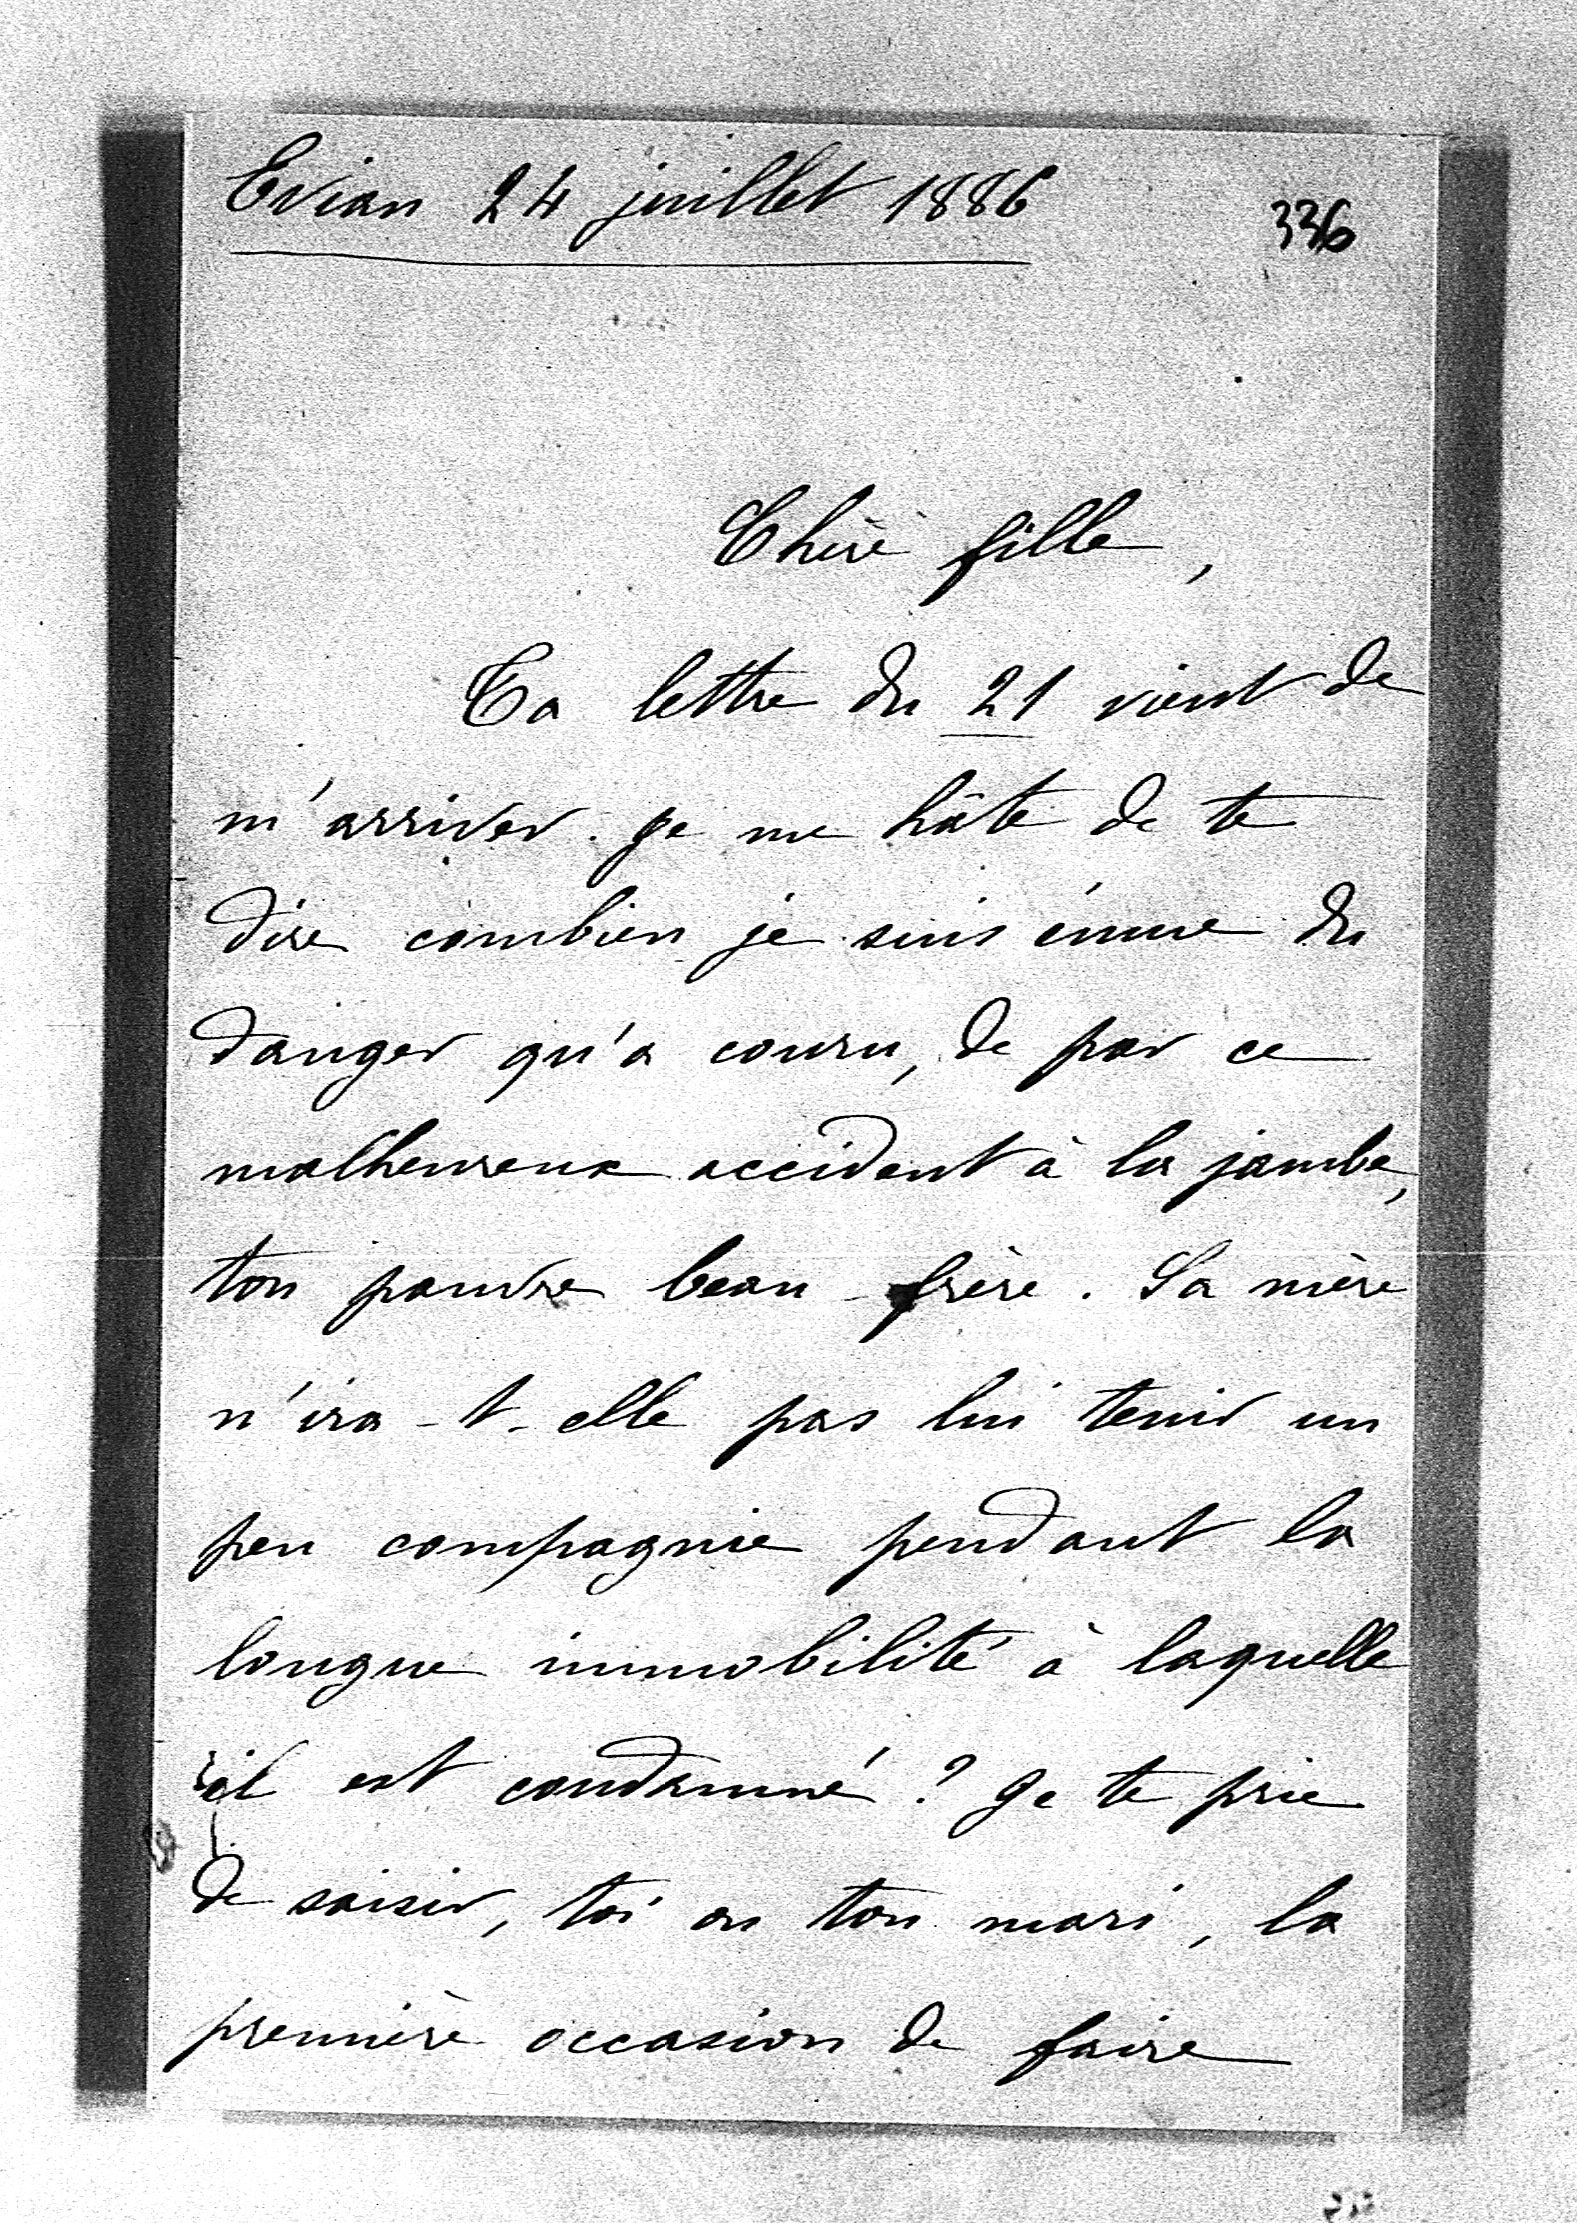 Evian 24 juillet 1886
336
Chère fille,
Ta lettre du 21 vient de
m'arriver. Je me hâte de te
dire combien je suis émue du
danger qu'a couru, de par ce
malheureux accident à la jambe,
ton pauvre beau-frère. Sa mère
n'ira-t-elle pas lui tenir un
peu compagnie pendant la
longue immobilité à laquelle
il est condamné ? Je te prie
de saisir, toi ou ton mari, la
première occasion de faire